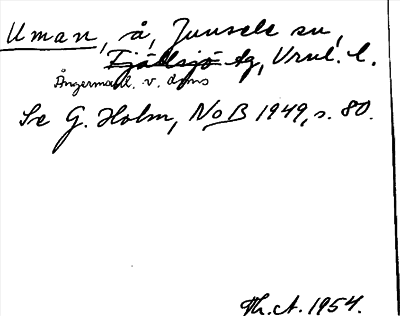 Uman, å, Junsele sn,
Fjällsjö tg, Vrnl. l.
Ångermanl. v. doms
Se G. Holm, NoB 1949, s. 80.
Th.A. 1954.